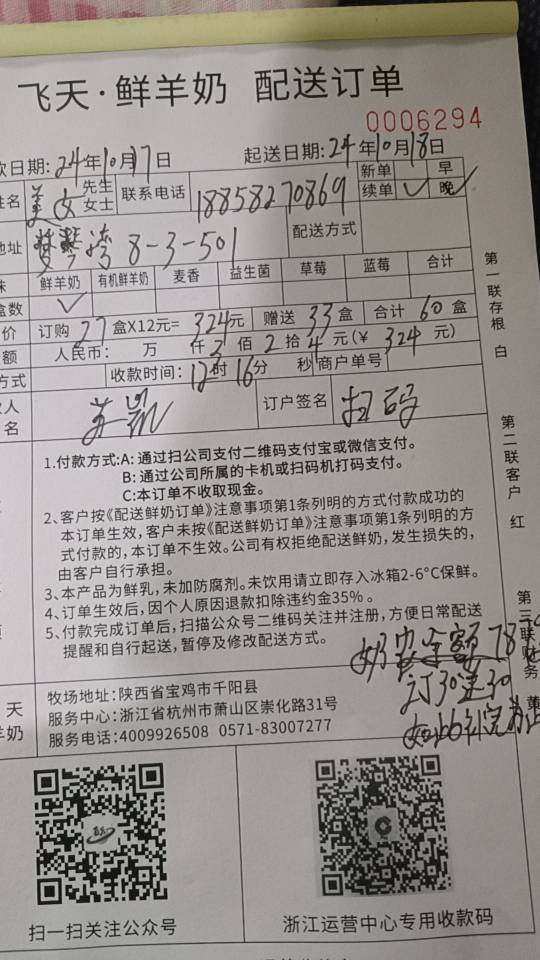 飞天·鲜羊奶 配送订单
0006294
款日期:24年10月17日 起送日期:24年10月18日
姓名 美女 先生 女士 联系电话 18858270869 新单 早 续单 ✓ 晚 ✓
地址 湾 8-3-501 配送方式
味 鲜羊奶 有机鲜羊奶 麦香 益生菌 草莓 蓝莓 合计
盒数 ✓
价 订购 27 盒X12元= 324元 赠送 33 盒 合计 60 盒
额 人民币: 万 仟 3 佰 2 拾 4 元(¥ 324 元)
方式 收款时间: 12时 16分 秒 商户单号
款人
名 订户签名 扫码
1.付款方式:A: 通过扫公司支付二维码支付宝或微信支付。
B: 通过公司所属的卡机或扫码机打码支付。
C:本订单不收取现金。
2、客户按《配送鲜奶订单》注意事项第1条列明的方式付款成功的
本订单生效,客户未按《配送鲜奶订单》注意事项第1条列明的方
式付款的,本订单不生效。公司有权拒绝配送鲜奶,发生损失的,
由客户自行承担。
3、本产品为鲜乳,未加防腐剂。未饮用请立即存入冰箱2-6°C保鲜。
4、订单生效后,因个人原因退款扣除违约金35%。
5、付款完成订单后,扫描公众号二维码关注并注册,方便日常配送
提醒和自行起送,暂停及修改配送方式。
奶 余额 78
订30送30
天
羊奶
牧场地址:陕西省宝鸡市千阳县
服务中心:浙江省杭州市萧山区崇化路31号
服务电话:4009926508 0571-83007277
扫一扫关注公众号
浙江运营中心专用收款码
第一联存根 白
第二联客户 红
第三联财务 黄